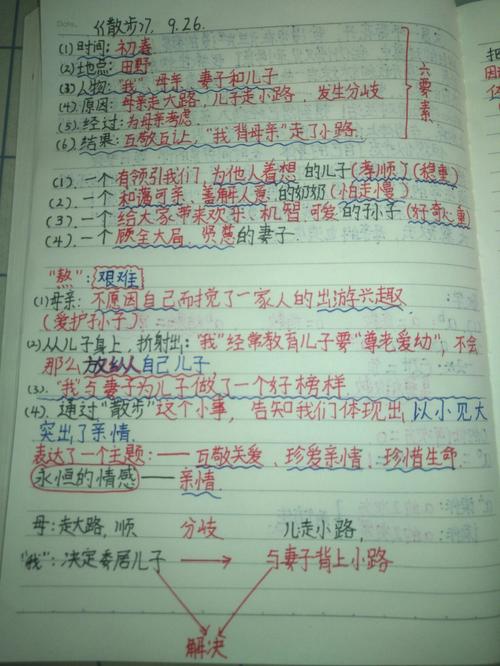 《散步》7. 9.26.
(1)时间: 初春
(2)地点: 田野
(3)人物: "我"、母亲、妻子和儿子
(4).原因: 母亲走大路,儿子走小路,发生分岐
(5).经过: 为母亲考虑
(6).结果: 互敬互让,"我背母亲"走了小路.
六要素
(1).一个有领引我们,为他人着想的儿子(孝顺)(稳重)
(2).一个和蔼可亲、善解人意的奶奶(怕走慢)
(3).一个给大家带来欢乐、机智.可爱的孙子(好奇心重)
(4).一个顾全大局,贤慈的妻子.
"熬": 艰难
(1)母亲: 不原因自己而搅了一家人的出游兴趣
(爱护孙子)
(2)从儿子身上,折射出:"我"经常教育儿子要"尊老爱幼",不会
那么放纵人自己儿子,
(3)."我"与妻子为儿子做了一个好榜样.
(4).通过"散步"这个小事,告知我们体现出以小见大
突出了亲情.
表达了一个主题:——互敬关爱、珍爱亲情、珍惜生命.
永恒的情感——亲情.
母:走大路,顺 分岐 儿走小路,
"我":决定委居儿子 → 与妻子背上小路
解决